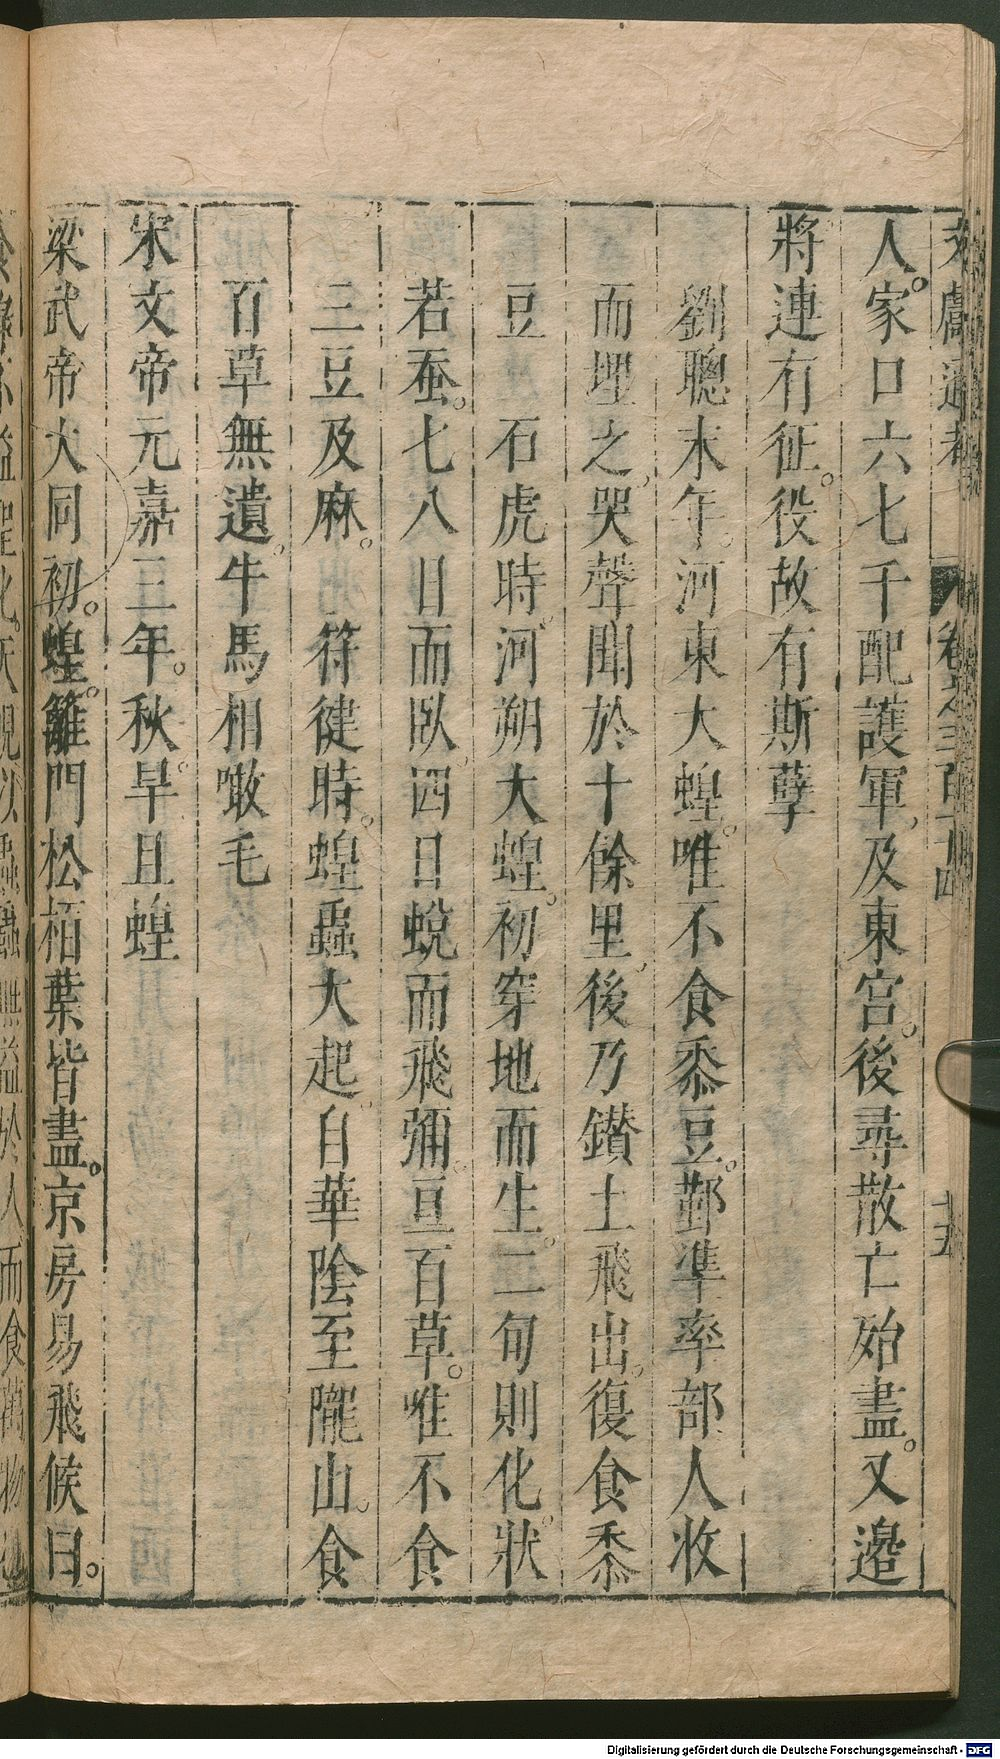 文獻通考 卷之三百十四 十五
人家口六七千配護軍及東宮後尋散亡殆盡又邊
將連有征役故有斯孽
劉聰末年河東大蝗唯不食黍豆鄞準率部人收
而埋之哭聲聞於十餘里後乃鑽土飛出復食黍
豆 石虎時河朔大蝗初穿地而生二旬則化狀
若蚕七八日而臥四日蛻而飛彌亘百草唯不食
三豆及麻 符健時蝗蟲大起自華陰至隴山食
百草無遺牛馬相噉毛
宋文帝元嘉三年秋旱且蝗
梁武帝大同初蝗籬門松栢葉皆盡京房易飛候曰
食祿不益聖化天視以蟲蟲無益於人而食萬物也
Digitalisierung gefördert durch die Deutsche Forschungsgemeinschaft - DFG